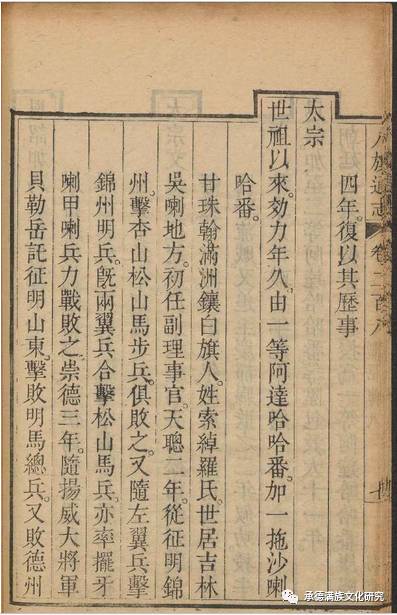 八旗通志 卷二百八
四年復以其歷事
太宗
世祖以來効力年久由一等阿達哈哈番加一拖沙喇
哈番
甘珠翰滿洲鑲白旗人姓索綽羅氏世居吉林
吳喇地方初任副理事官天聰二年從征明錦
州擊杏山松山馬步兵俱敗之又隨左翼兵擊
錦州明兵旣兩翼兵合擊松山馬兵亦率擺牙
喇甲喇兵力戰敗之崇德三年隨揚威大將軍
貝勒岳託征明山東擊敗明馬總兵又敗德州
承德满族文化研究